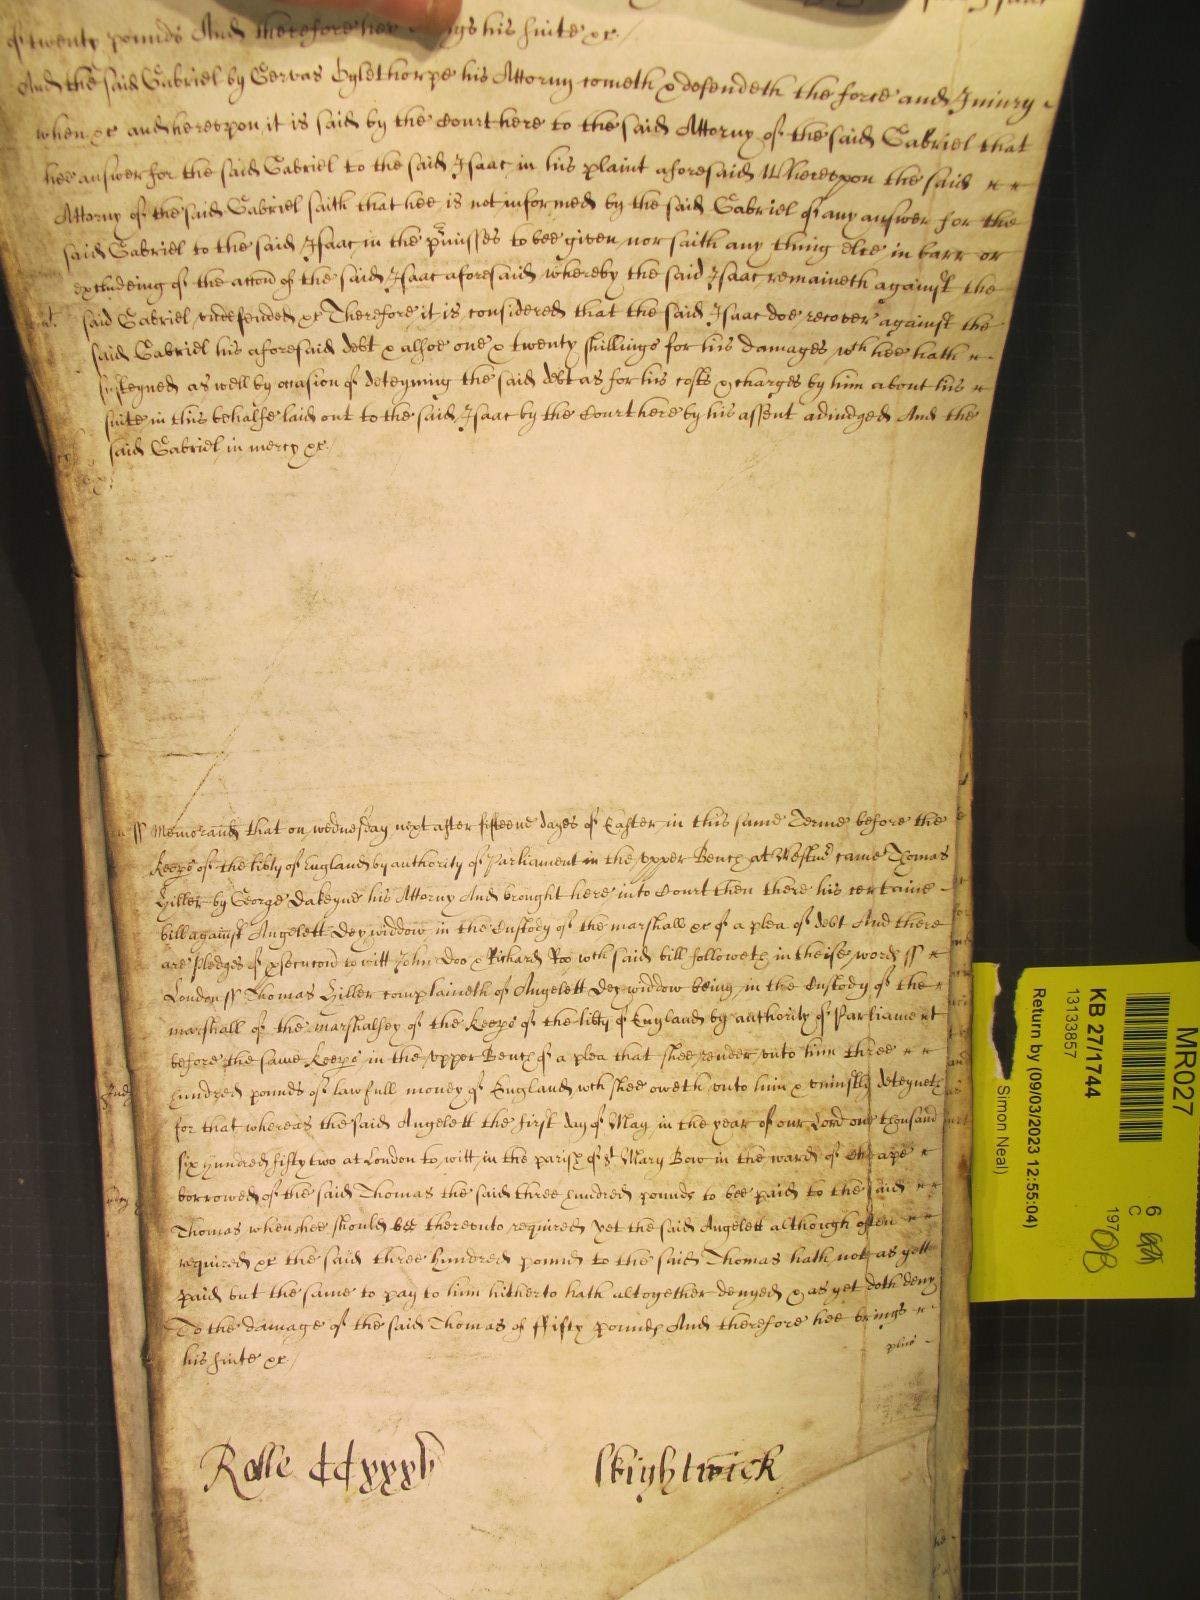 of twenty pounds And therefore hee brings his suite &c./
And the said Gabriel by Gervas Oglethorpe his Attorny cometh & defendeth the force and Iniury
when &c and hereupon it is said by the Court here to the said Attorny of the said Gabriel that
hee answer for the said Gabriel to the said Isaac in his plaint aforesaid Whereupon the said
Attorny of the said Gabriel saith that hee is not informed by the said Gabriel of any answer for the
said Gabriel to the said Isaac in the p'misses to bee given nor saith any thing else in barr or
excludeing of the accon of the said Isaac aforesaid whereby the said Isaac remaineth against the
said Gabriel vndefended &c Therefore it is considered that the said Isaac doe recover against the
said Gabriel his aforesaid debt & alsoe one & twenty shillings for his damages wch hee hath
susteyned as well by occasion of deteyning the said debt as for his costs & charges by him about his
suite in this behalfe laid out to the said Isaac by the Court here by his assent adiudged And the
said Gabriel in mercy &c./
ss Memorand that on wednesday next after fifteene dayes of Easter in this same Terme before the
Keeps of the libty of England by authority of Parliament in the vpper Bench at Westmr came Thomas
Hiller by George Dakeyne his Attorny And brought here into Court then there his certaine
bill against Angelett Dey widdow in the Custody of the marshall &c of a plea of debt And there
are pledges of psecucon to witt John Doo & Richard Roo wch said bill followeth in theise words ss
London ss Thomas Hiller complaineth of Angelett Dey widdow being in the Custody of the
marshall of the marshalsey of the Keeps of the libty of England by authority of Parliament
before the same Keeps in the vpper Bench of a plea that shee render vnto him three
hundred pounds of lawfull money of England wch shee oweth vnto him & vniustly deteyneth
for that whereas the said Angelett the first day of May in the year of our Lord one thousand
six hundred fifty two at London to witt in the parish of St Mary Bow in the ward of Cheape
borrowed of the said Thomas the said three hundred pounds to bee paid to the said
Thomas when shee should bee therevnto required Yet the said Angelett although often
required &c the said three hundred pounds to the said Thomas hath not as yett
paid but the same to pay to him hitherto hath altogether denyed & as yet doth deny
To the damage of the said Thomas of ffifty pounds And therefore hee brings
his suite &c./
plus
Rolle CCxxxv Skightwick
MR027
KB 27/1744
13133857
Return by (09/03/2023 12:55:04)
Simon Neal)
6
C
197